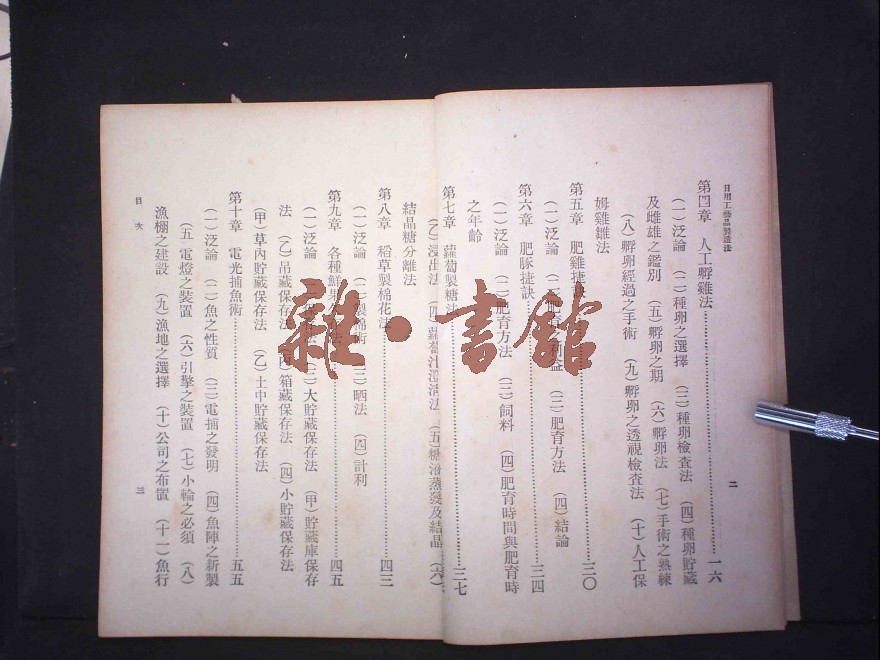 日用工藝品製造法
第四章 人工孵雞法……一六
(一)泛論 (二)種卵之選擇 (三)種卵檢査法 (四)種卵貯藏
及雌雄之鑑別 (五)孵卵之期 (六)孵卵法 (七)手術之熟練
(八)孵卵經過之手術 (九)孵卵之透視檢査法 (十)人工保
姆雞雛法
第五章 肥雞捷……三〇
(一)泛論 (二)肥育利益 (三)肥育方法 (四)結論
第六章 肥豚捷訣……三四
(一)泛論 (二)肥育方法 (三)飼料 (四)肥育時間與肥育時
之年齡
二
第七章 蘿蔔製糖法……三七
(乙)浸出法 (四)蘿蔔汁 法 (五)糖液蒸發及結晶 (六)
結晶糖分離法
第八章 稻草製棉花法……四三
(一)泛論 (二)製棉術 (三)晒法 (四)計利
第九章 各種鮮果 法……四五
(一)泛論 (二) 法 (三)大貯藏保存法 (甲)貯藏庫保存
法 (乙)吊藏保存法 (丙)箱藏保存法 (四)小貯藏保存法
(甲)草內貯藏保存法 (乙)土中貯藏保存法
第十章 電光捕魚術……五五
(一)泛論 (二)魚之性質 (三)電捕之發明 (四)魚陣之新製
(五)電燈之裝置 (六)引擎之裝置 (七)小輪之必須 (八)
漁棚之建設 (九)漁地之選擇 (十)公司之布置 (十一)魚行
目次
三
雜·書館